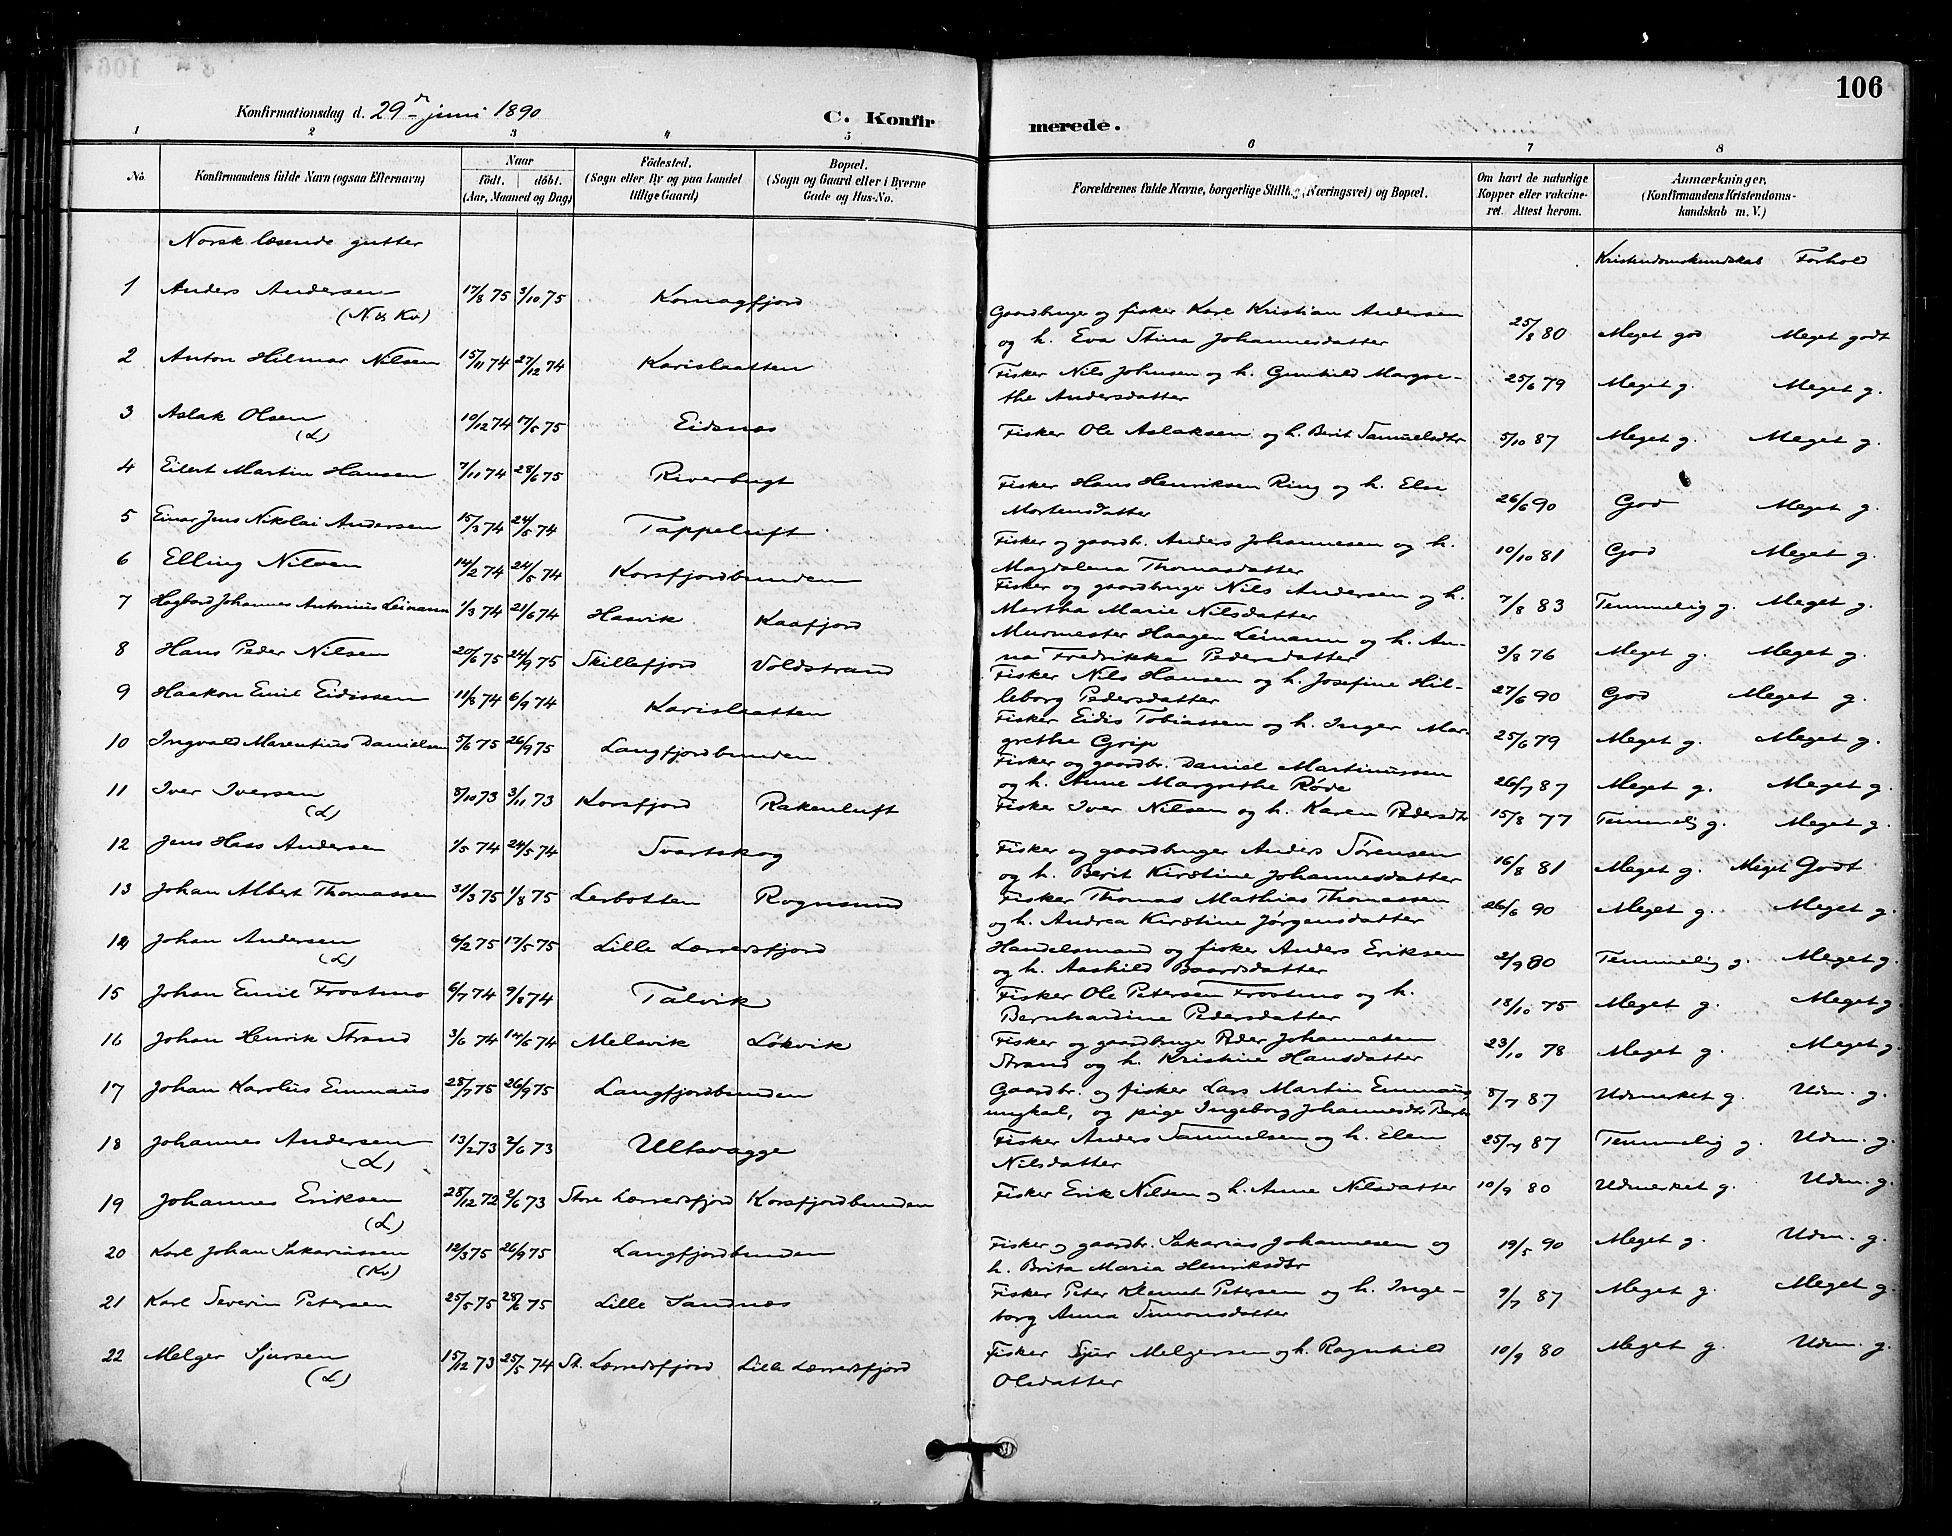 106
Konfirmationsdag d. 29de juni 1890
C. Konfirmerede.
1 2 3 4 5 6 7 8
No. Konfirmandens fulde Navn (ogsaa Efternavn) Naar födt. döbt. (Aar, Maaned og Dag) Födested. (Sogn eller By og paa Landet tillige Gaard) Bopæl. (Sogn og Gaard eller i Byerne Gade og Hus-No. Forældrenes fulde Navne, borgerlige Stilling (Næringsvei) og Bopæl. Om havt de naturlige Kopper eller vakcineret. Attest herom. Anmærkninger, (Konfirmandens Kristendomskundskab m. V.)
Norsk læsende gutter
Kristendomskundskab Forhold
1 Anders Andersen 17/8 75 3/10 75 Komagfjord Gaardbruger og fisker Karl Kristian Andersen 25/8 80 Meget god Meget godt
(N. & Kv.) og h. Eva Stina Johannesdatter
2 Anton Hilmar Nilsen 15/11 74 27/12 74 Karislaatten Fisker Nils Johnsen og h. Gunhild Margre- 25/6 79 Meget g. Meget g.
the Andersdatter
3 Aslak Olsen 10/12 74 17/5 75 Eidsnes Fisker Ole Aslaksen og h. Berit Samuelsdtr 5/10 87 Meget g. Meget g.
(L)
4 Eilert Martin Hansen 7/11 74 28/6 75 Riverbugt Fisker Hans Henriksen Ring og h. Else 26/6 90 God Meget g.
Mortensdatter
5 Einar Jens Nikolai Andersen 15/3 74 24/5 74 Tappeluft Fisker og gaardbr. Anders Johannesen og h. 10/10 81 God Meget g.
Magdalena Thomasdatter
6 Elling Nilsen 14/2 74 24/5 74 Korsfjordbunden Fisker og gaardbruger Nils Andersen og h. 7/8 83 Temmelig g. Meget g.
Martha Marie Nilsdatter
7 Hagbard Johannes Antonius Leinann 1/3 74 21/6 74 Hasvik Kaafjord Murmester Haagen Leinann og h. An- 3/8 76 Meget g. Meget g.
na Fredrikke Pedersdatter
8 Hans Peder Nilsen 20/6 75 24/9 75 Skillefjord Voldstrand Fisker Nils Hansen og h. Josefine Hil- 27/6 90 God Meget g.
leborg Pedersdatter
9 Haakon Emil Eidissen 11/8 74 6/9 74 Karislaatten Fisker Eidis Tobiassen og h. Inger Mar- 25/6 79 Meget g. Meget g.
grethe Grip
10 Ingvald Marentius Danielsen 5/6 75 26/9 75 Langfjordbunden Fisker og gaardbr. Daniel Martinussen 26/7 87 Meget g. Meget g.
og h. Anne Margrethe Røde
11 Iver Iversen 8/10 73 3/11 73 Korsfjord Rakenluft Fisker Iver Nilsen og h. Karen Pedersdtr 15/8 77 Temmelig g. Meget g.
(L)
12 Jens Hass Andersen 1/5 74 24/5 74 Svartskog Fisker og gaardbruger Anders Sørensen 16/8 81 Meget g. Meget Godt
og h. Berit Kirstine Johannesdatter
13 Johan Albert Thomassen 31/3 75 1/8 75 Lerbotten Rognsund Fisker Thomas Mathias Thomassen 26/6 90 Meget g. Meget g.
og h. Andrea Kirstine Jørgensdatter
14 Johan Andersen 6/2 75 17/5 75 Lille Lærredsfjord Handelsmand og fisker Anders Eriksen 2/9 80 Temmelig g. Meget g.
(L) og h. Aashild Baardsdatter
15 Johan Emil Frostmo 6/7 74 9/8 74 Talvik Fisker Ole Petersen Frostmo og h. 18/10 75 Meget g. Meget g.
Bernhardine Pedersdatter
16 Johan Henrik Strand 3/6 74 14/6 74 Melsvik Løkvik Fisker og gaardbruger Peder Johannesen 23/10 78 Meget g. Meget g.
Strand og h. Kristine Hansdatter
17 Johan Karolius Emmaus 28/7 75 26/9 75 Langfjordbunden Gaardbr. og fisker Lars Martin Emmaus, 8/7 87 Udmerket g. Udm. g.
ungkal, og pige Ingeborg Johannesdtr.
18 Johannes Andersen 13/2 73 2/6 73 Ultsvagge Fisker Anders Samuelsen og h. Elen 25/7 87 Temmelig g. Udm. g.
(L) Nilsdatter
19 Johannes Eriksen 28/12 72 2/6 73 Store Lærredsfjord Korsfjordbunden Fisker Erik Nilsen og h. Anne Nilsdatter 10/9 80 Udmerket g. Udm. g.
(L)
20 Karl Johan Sakariassen 12/3 75 26/9 75 Langfjordbunden Fisker og gaardbr. Sakarias Johannesen og 19/5 90 Meget g. Udm. g.
(Kv) h. Brita Maria Henriksdtr
21 Karl Severin Petersen 25/5 75 28/6 75 Lille Sandnes Fisker Peter Klemet Petersen og h. Inge- 9/7 87 Meget g. Meget g.
borg Anna Simonsdatter
22 Melger Sjursen 15/12 73 25/5 74 St. Lærredsfjord Lille Lærredsfjord Fisker Sjur Melgersen og h. Ragnhild 10/9 80 Meget g. Udm. g.
(L) Olsdatter